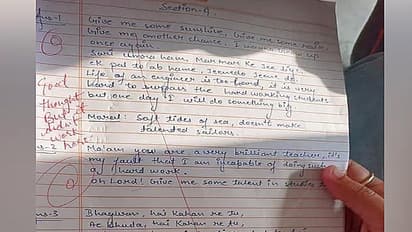 Section-A
Ans-1
Give me some sunshine, Give me some rain,
Give me another chance, I wanna grow up
once again
Sari umora ham, Marmar Ke Jee liye
ek pal to ab hame, Jeenedo Jeene do
Life of an engineer is too hard it is very
hard to surpass the hard working students
but one day I will do something big
Moral: Soft tides of sea, doesn't make
talented sailors.
0
Good
thought
But it
didn't
work
here.
ns-2 Ma'am you are a very brilliant teacher, it's
my fault that I am incapable of doing such
hard work.
oh Lord! Give me some talent in studies
0
ns-3 Bhagwan, hai Kahan re tu,
Ae Khuda, hai Kahan re tu.